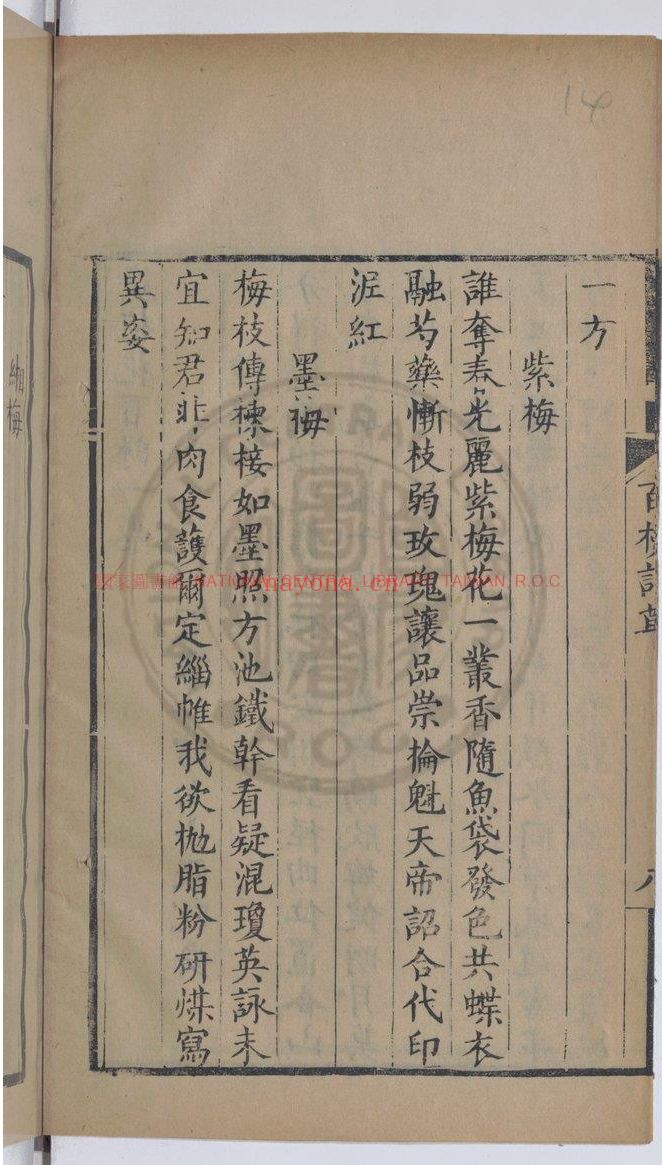 一方
紫梅
誰奪春光麗紫梅花一叢香隨魚袋發色共蝶衣
融芍藥慚枝弱玫瑰讓品崇掄魁天帝詔合代印
泥紅
墨梅
梅枝傳楝接如墨照方池鐵幹看疑混瓊英詠未
宜知君非肉食護爾定緇帷我欲拋脂粉研煤寫
異姿
緗梅
百梅詩
八
14
國家圖書館 NATIONAL CENTRAL LIBRARY, TAIWAN, R.O.C
nayona.cn